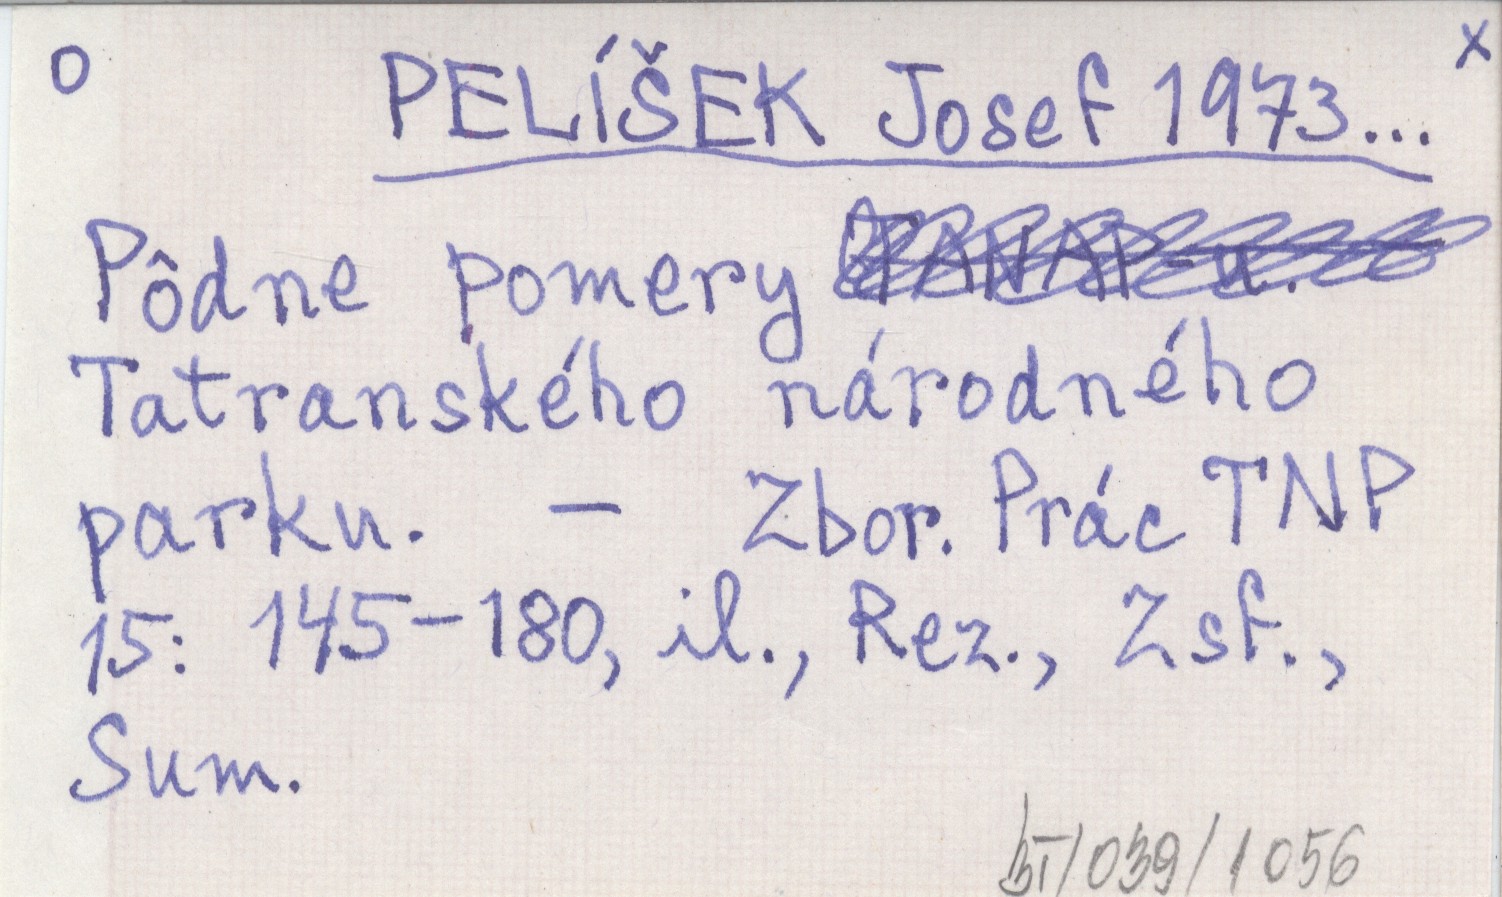 O PELÍŠEK Josef 1973... x
Pôdne pomery
Tatranského národného
parku. — Zbor. Prác TNP
15: 145-180, il., Rez., Zsf.,
Sum.
/039/1056